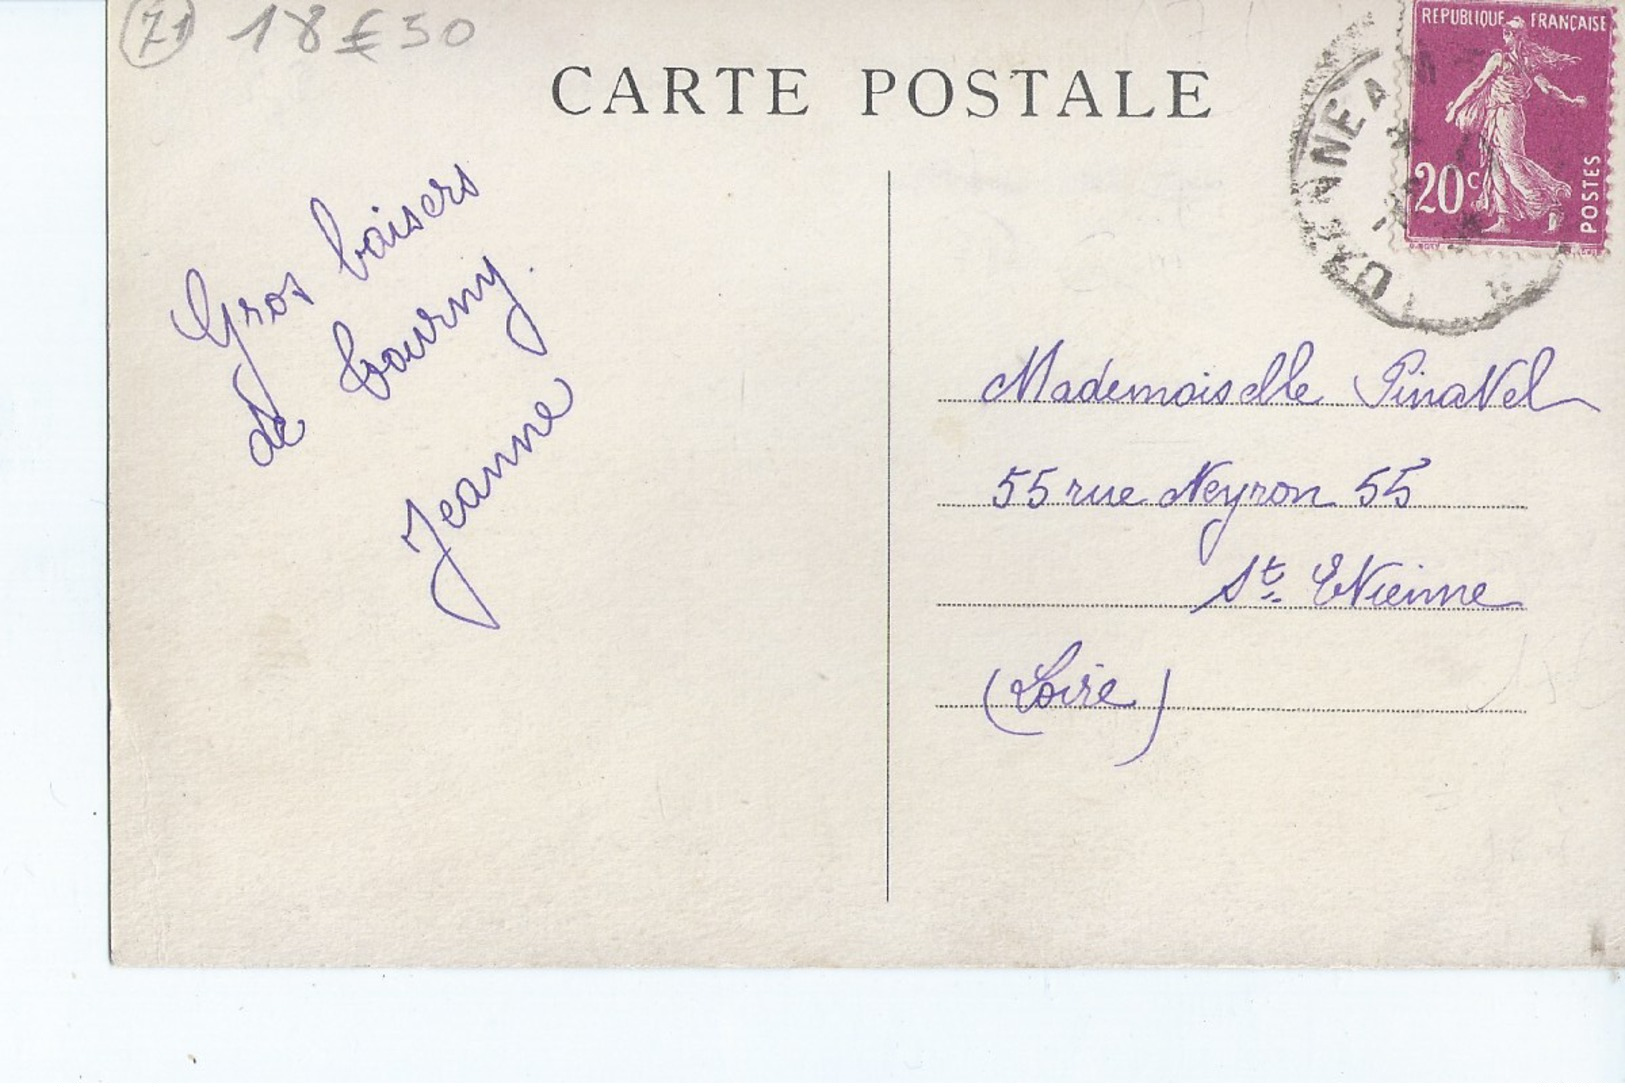 (71) 18€50
CARTE POSTALE
REPUBLIQUE FRANÇAISE
20c
POSTES
Gros baisers
de Tourny.
Jeanne
Mademoiselle Pinatel
55 rue Neyron 55
St. Etienne
(Loire)